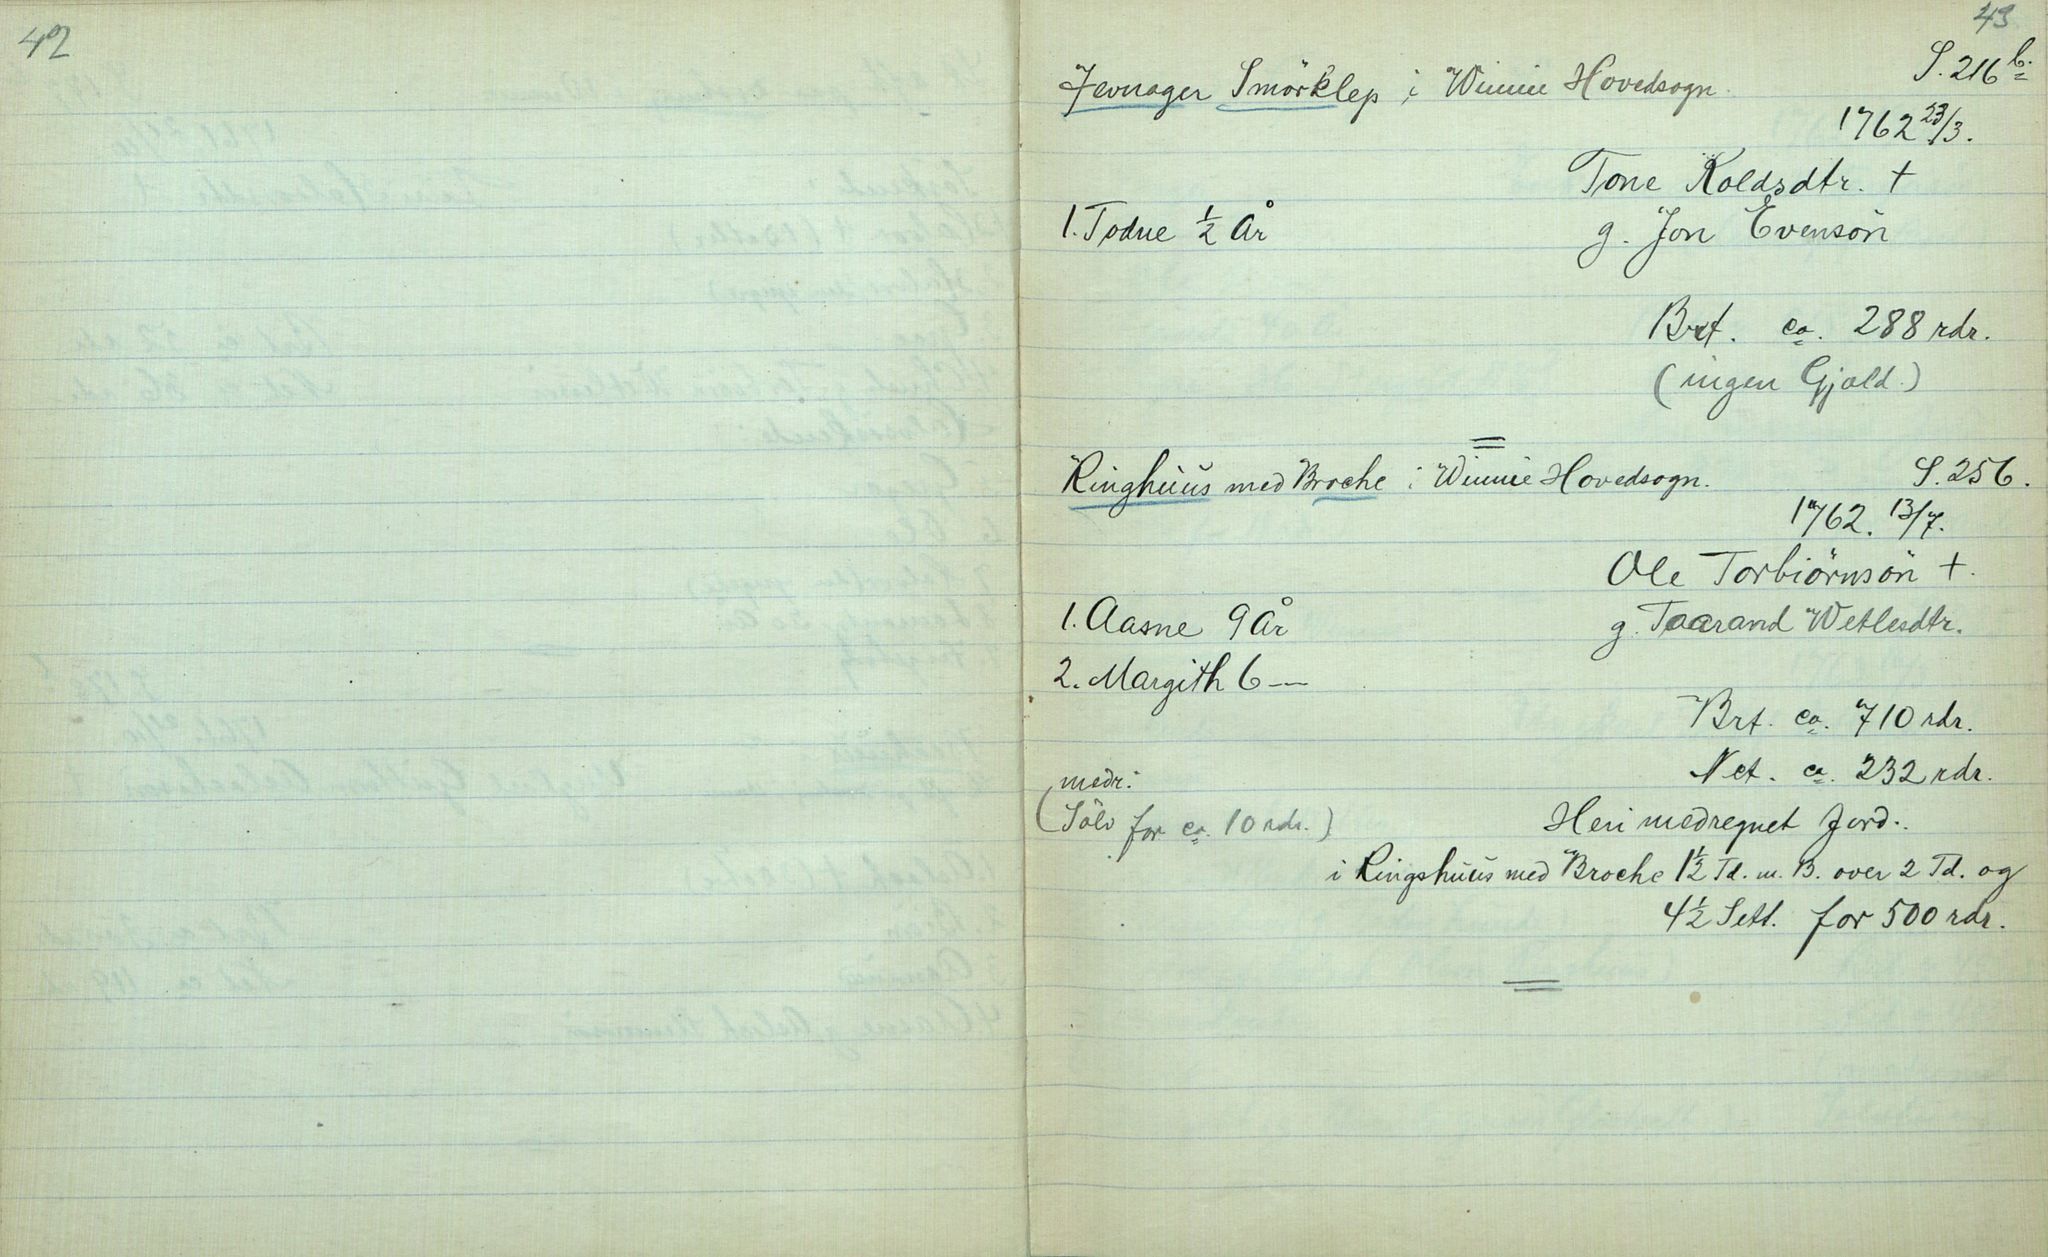 42
43
Jevnager Smörklep i Winnie Hovedsogn.
S. 216 b.
1762 23/3.
Tone Koldsdtr. +
1. Todne 1/2 År
g. Jon Evensön
Brt. ca. 288 rdr.
(ingen Gjæld.)
Ringhuus med Broche i Winnie Hovedsogn.
S. 256.
1762. 13/7.
Ole Torbiörnsön +.
1. Aasne 9 År
g. Taarand Wetlesdtr.
2. Margith 6 —
Brt. ca. 710 rdr.
Net. ca. 232 rdr.
medr.
(Sölv for ca. 10 rdr.)
Heri medregnet Jord.
i Ringshuus med Broche 1 1/2 Td. m. B. over 2 Td. og
4 1/2 Sett. for 500 rdr.